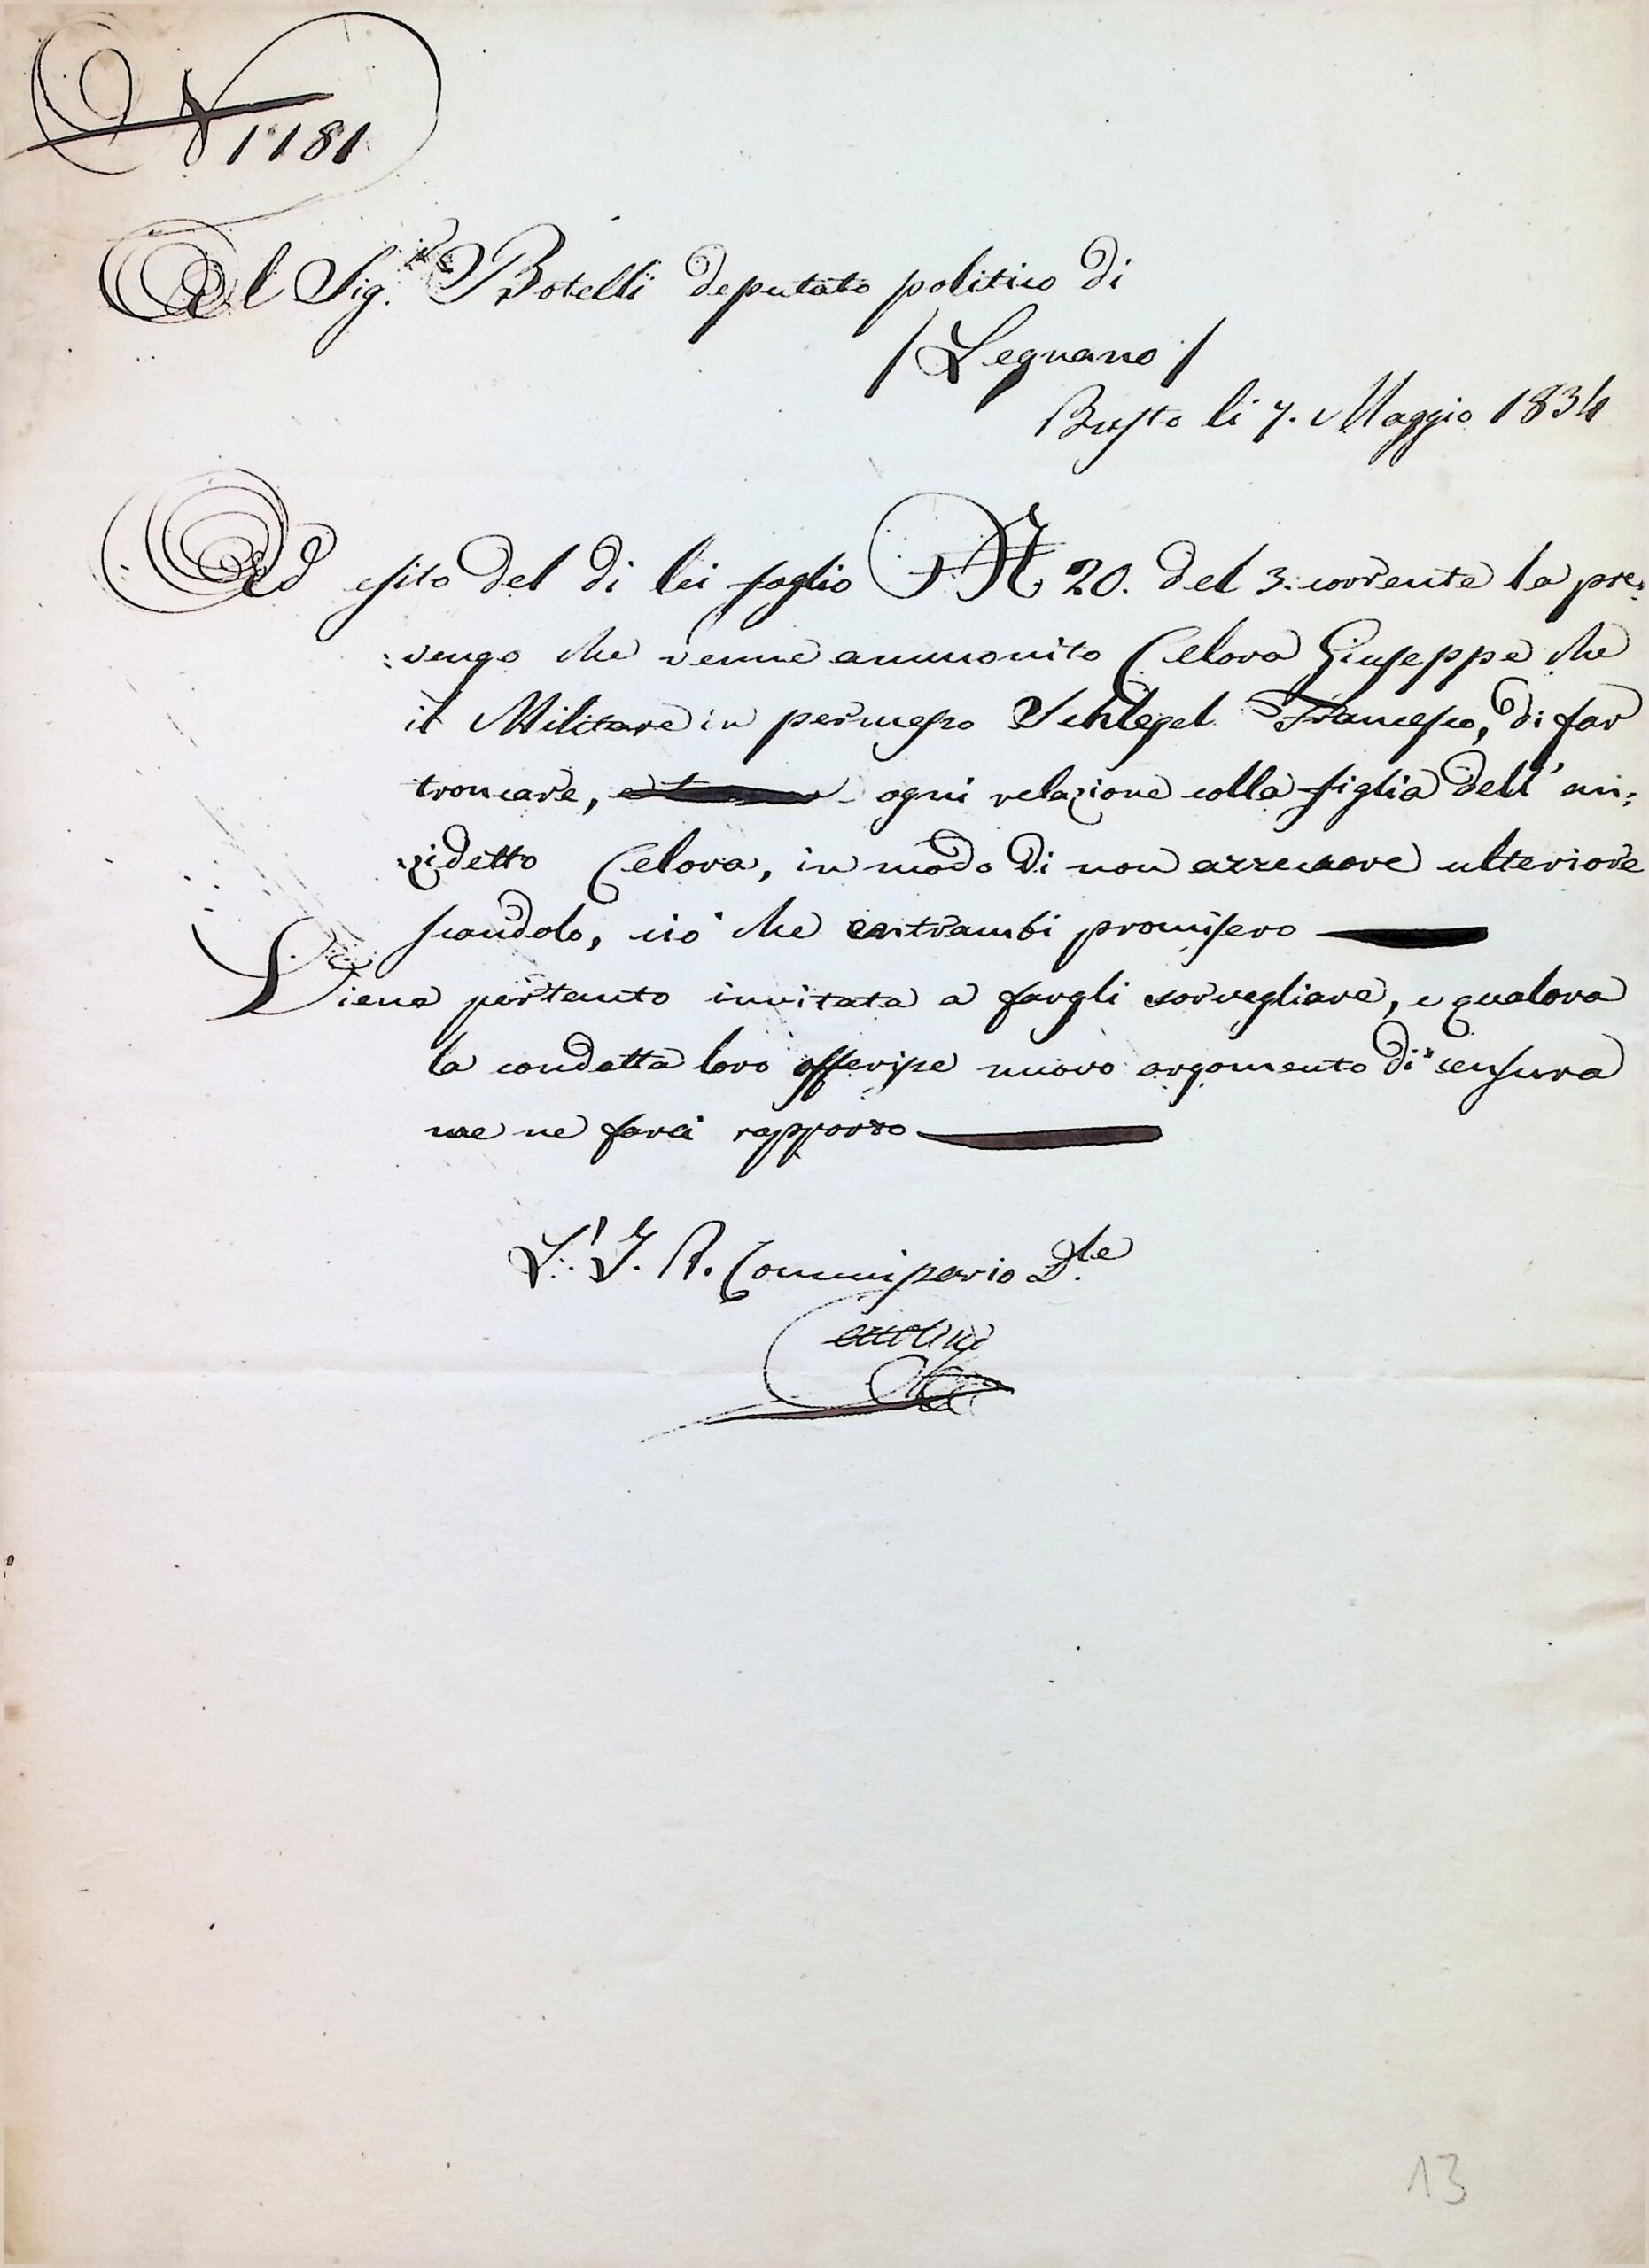 N 1181
Al Sig.r Botelli deputato politico di
/ Legnano /
Busto li 7. Maggio 1834
Ad esito del di lei foglio N 20. del 3. corrente la pre:
:vengo che venne ammonito Celora Giuseppe che
il Militare in permesso Schlegel Francesco, di far
troncare, ogni relazione colla figlia dell' an:
:zidetto Celora, in modo di non arrecare ulteriore
scandolo, ciò che entrambi promisero
Viene pertanto invitata a fargli sorvegliare, e qualora
la condotta loro offerisse nuovo argomento di censura
me ne farà rapporto
L' I. R. Commissario D.le
13